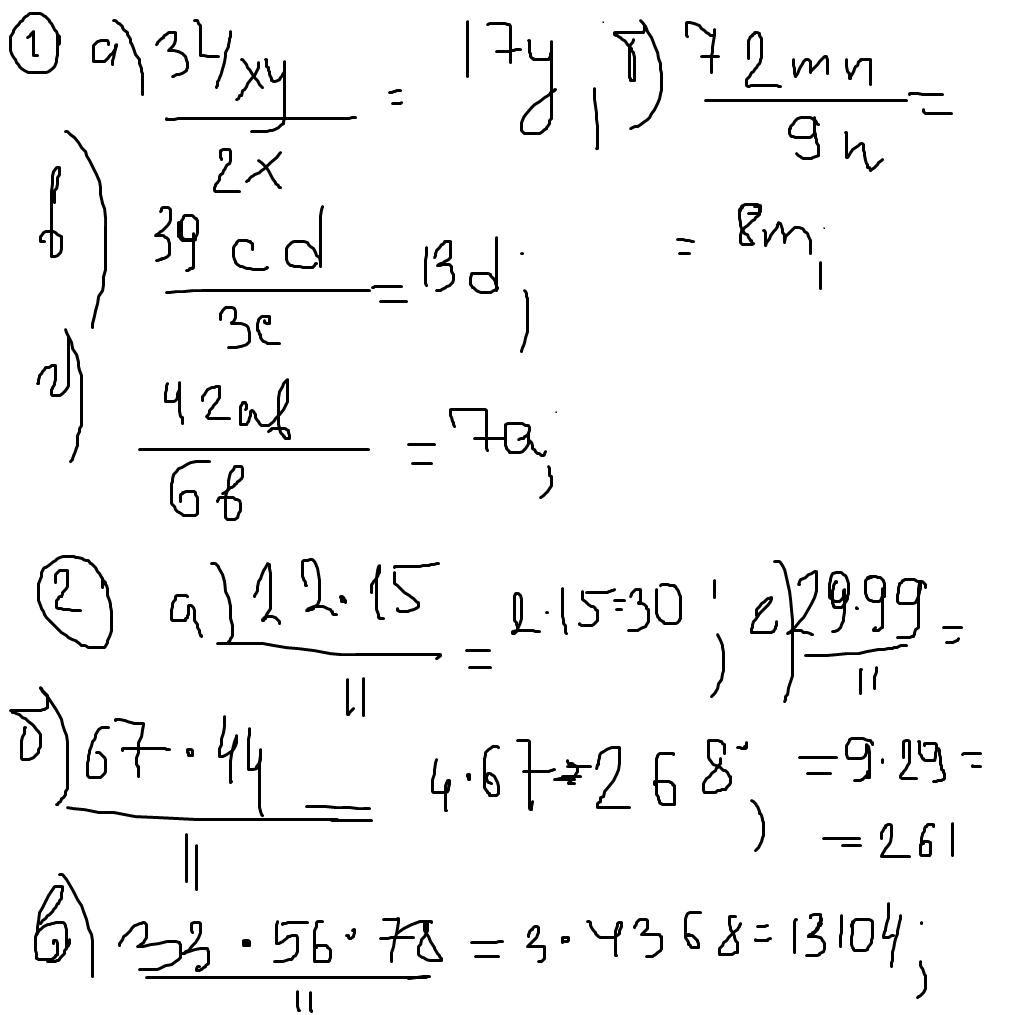 ① а) 34xy / 2x = 17y; б) 72mn / 9n =
= 8m;
в) 39cd / 3c = 13d;
г) 42ab / 6b = 7a;
② а) 22·15 / 11 = 2·15=30; г) 29·99 / 11 =
= 9·29 =
= 261
б) 67·44 / 11 = 4·67=268;
в) 33·56·78 / 11 = 3·4368=13104;